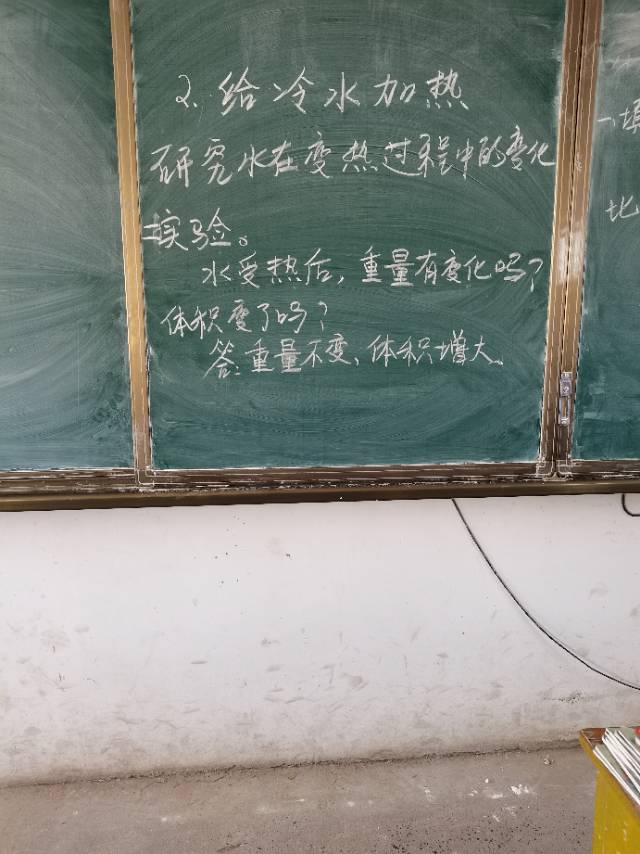 2、给冷水加热
研究水在变热过程中的变化
实验。
水受热后,重量有变化吗?
体积变了吗?
答:重量不变、体积增大。
一、填
比